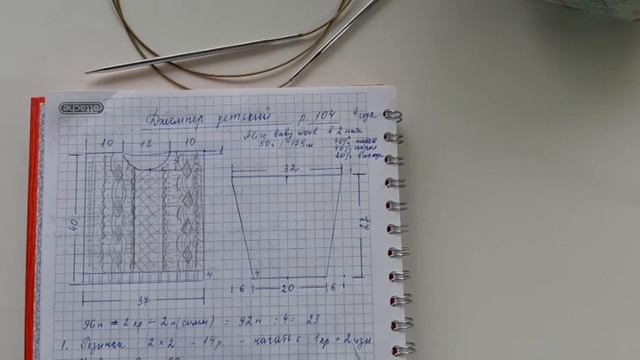 attache
Джемпер детский р. 104 4 года
Alize baby wool в 2 нити
50г / 175м 40% шерсть
40% акрил
20% бамбук
10 17 10
32
40
27
4
4
6 20 6
37
96п = 2кр - 2п (симм) = 92п : 4 = 23
1. Резинка 2 х 2 - 14р. - начать с 1кр + 2 изн.